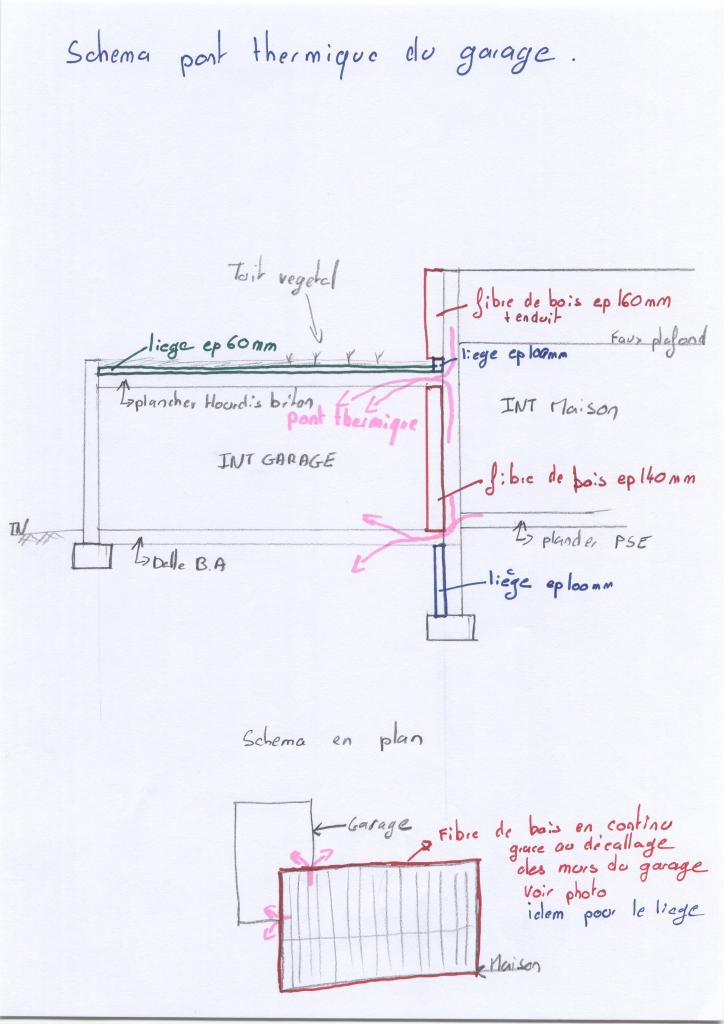 Schema pont thermique du garage.
Toit vegetal
fibre de bois ep 160mm
+ enduit
liege ep 60mm
liege ep 100mm
Faux plafond
plancher Hourdis béton
pont thermique
INT Maison
INT GARAGE
fibre de bois ep 140mm
TN
plancher PSE
Dalle B.A
liège ep 100mm
Schema en plan
Garage
Fibre de bois en continu
grace au décallage
des murs du garage
voir photo
idem pour le liege
Maison